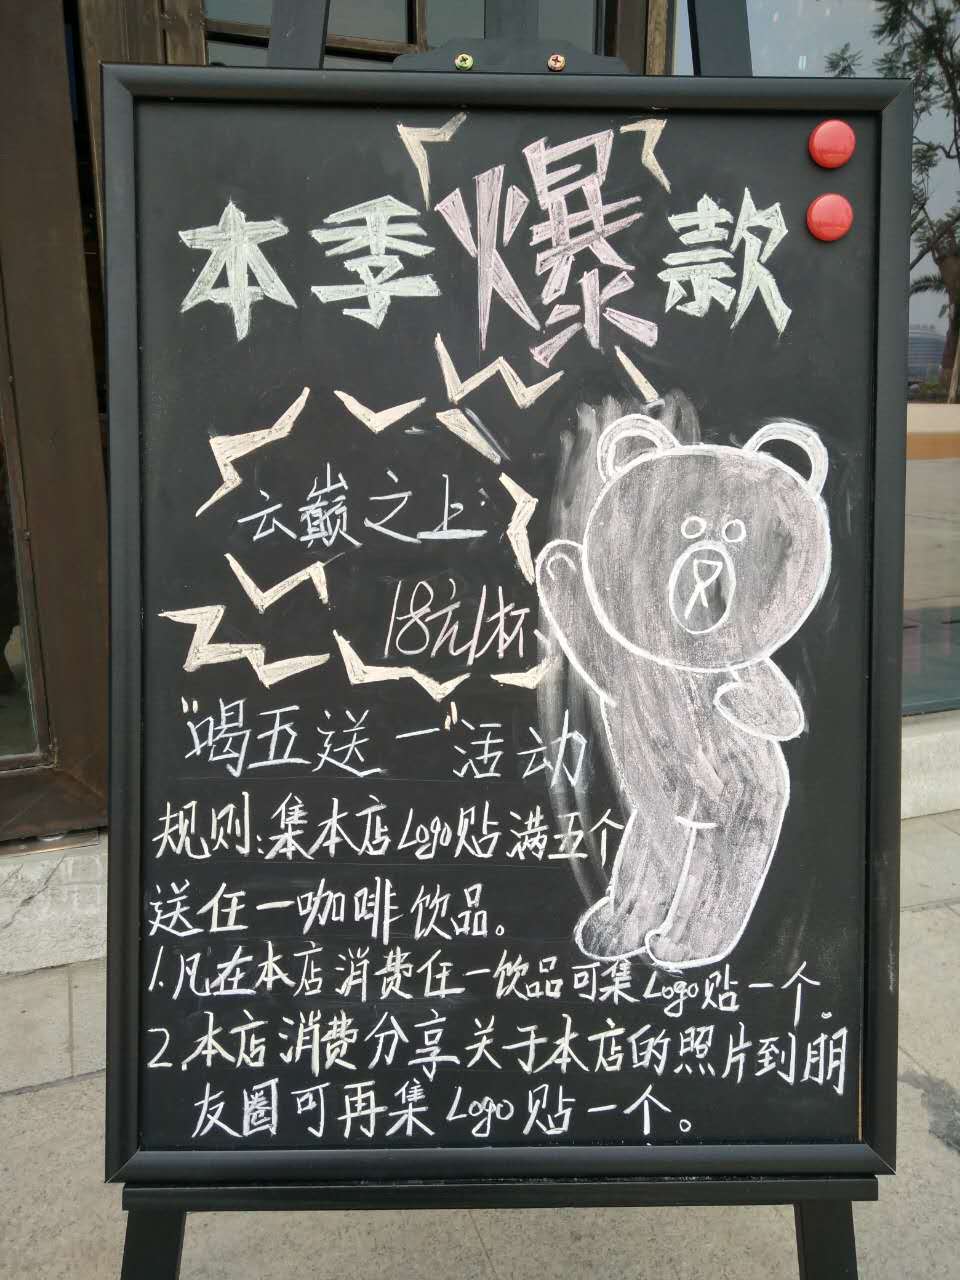 本季爆款
云巅之上:
18元/杯
"喝五送一"活动
规则:集本店Logo贴满五个
送任一咖啡饮品。
1.凡在本店消费任一饮品可集Logo贴一个。
2.本店消费分享关于本店的照片到朋
友圈可再集Logo贴一个。